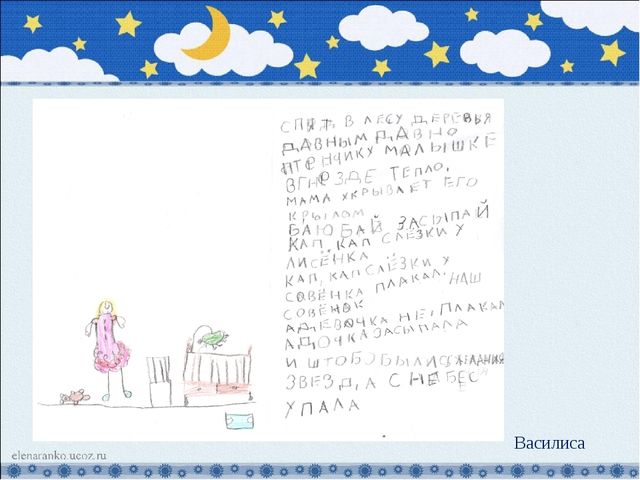 СПЯТ, В ЛЕСУ ДЕРЕВЬЯ
ДАВНЫМ ДАВНО
ПТЕНЧИКУ МАЛЫШКЕ
ВГНЕЗДЕ ТЕПЛО,
МАМА УКРЫВАЕТ ЕГО
КРЫЛОМ
БАЮ БАЙ ЗАСЫПАЙ
КАП, КАП СЛЁЗКИ У
ЛИСЁНКА
КАП, КАП СЛЁЗКИ У
СОВЁНКА ПЛАКАЛ, НАШ
СОВЁНОК
АДЕВОЧКА НЕ, ПЛАКАЛ
АДОЧКА ЗАСЫПАЛА
И ШТОБ ЗБЫЛИСЬ
ЗВЕЗД, А С НЕБЕС
УПАЛА
Василиса
elenaranko.ucoz.ru